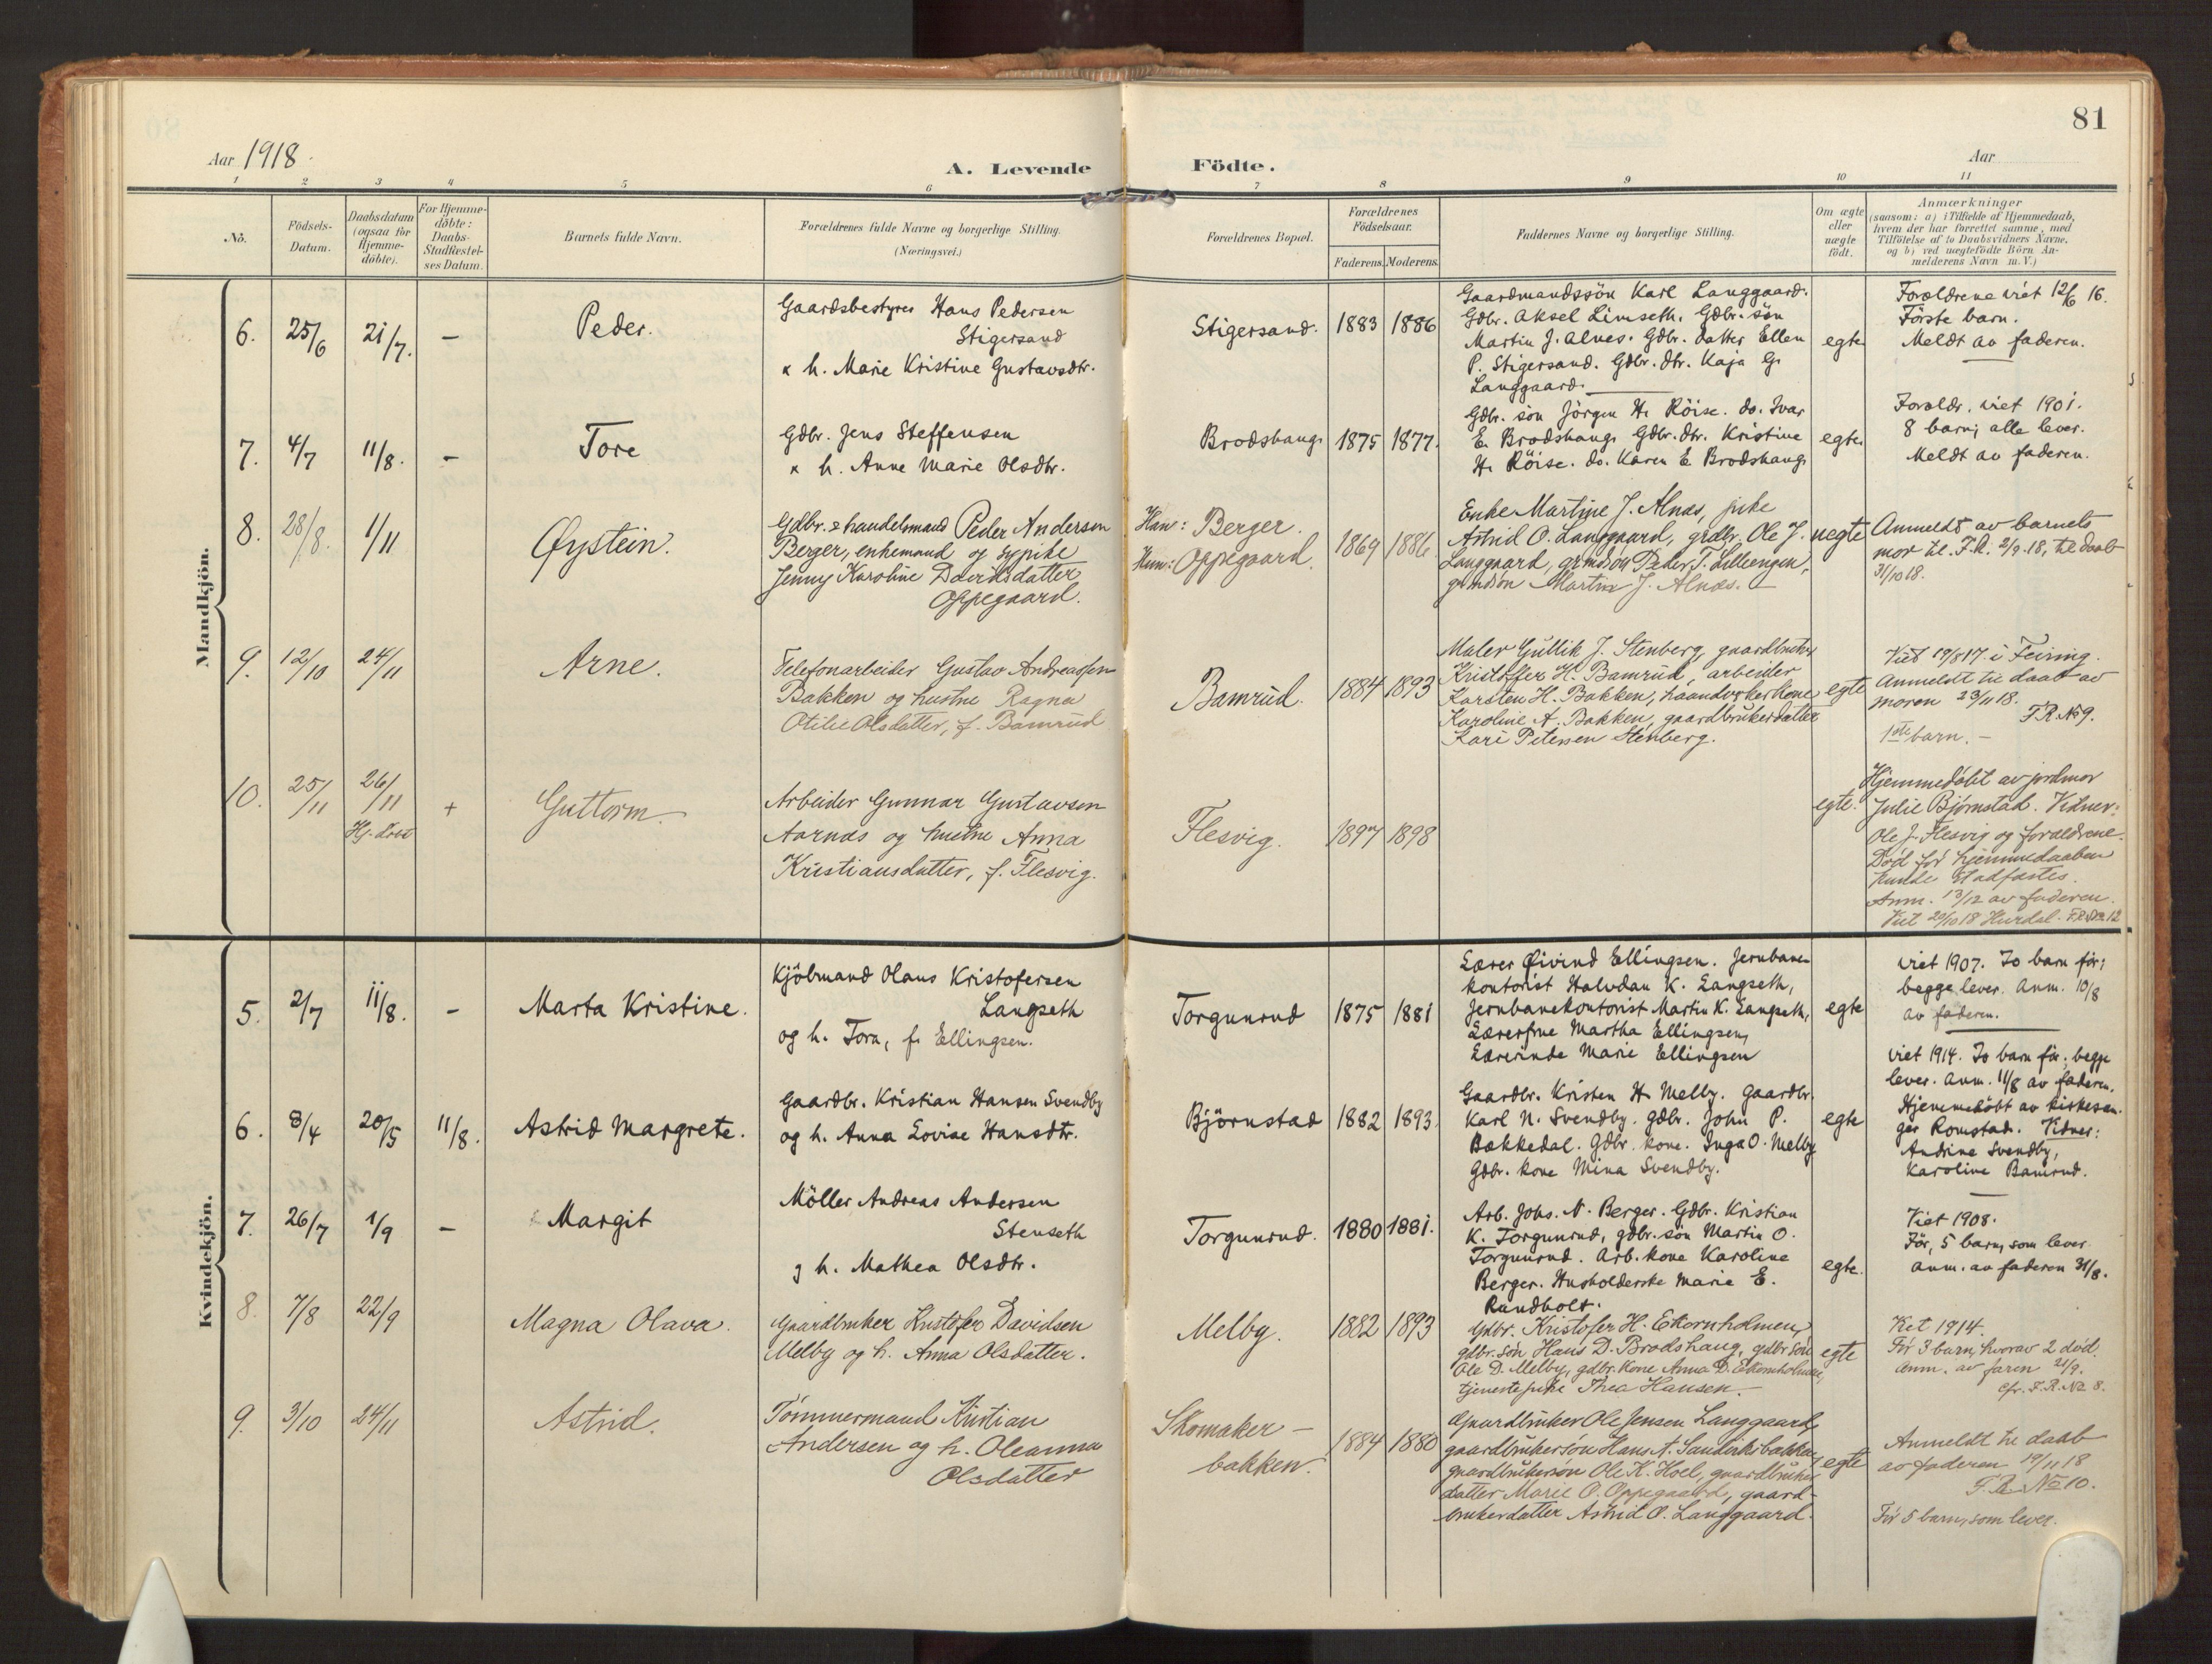 81
Aar 1918.
A. Levende Födte.
Aar
1 2 3 4 5 6 7 8 9 10 11
No.
Födsels-
Datum.
Daabsdatum
(ogsaa for
Hjemme-
döbte).
For Hjemme-
döbte:
Daabs-
Stadfæstel-
ses Datum.
Barnets fulde Navn.
Forældrenes fulde Navne og borgerlige Stilling.
(Næringsvei.)
Forældrenes Bopæl.
Forældrenes
Födselsaar.
Faderens.
Moderens.
Faddernes Navne og borgerlige Stilling.
Om ægte
eller
uægte
födt.
Anmærkninger
(saasom: a) i Tilfælde af Hjemmedaab,
hvem der har forrettet samme, med
Tilföielse af to Daabsvidners Navne,
og b) ved uægtefödte Börn An-
melderens Navn m. V.)
Mandkjön.
6.
25/6
21/7.
—
Peder.
Gaardsbestyrer Hans Pedersen
Stigersand
& h. Marie Kristine Gustavsdtr.
Stigersand.
1883
1886
Gaardmandssön Karl Langgaard.
Gdbr. Aksel Limseth. Gdbr. sön
Martin J. Alnes. Gdbr. datter Ellen
P. Stigersand. Gdbr. dtr. Kaja G.
Langgaard.
egte
Forældrene viet 12/6 16.
Förste barn.
Meldt av faderen.
7.
4/7
11/8.
—
Tore
Gdbr. Jens Steffensen
& h. Anne Marie Olsdtr.
Brodshaug
1875
1877.
Gdbr. sön Jörgen H. Röise. do. Ivar
E. Brodshaug Gdbr. dtr. Kristine
H. Röise. do. Karen E Brodshaug
egte
Foraldr. viet 1901.
8 barn; alle lever.
Meldt av faderen.
8.
28/8.
1/11
Øystein.
Gdbr. & handelsmand Peder Andersen
Berger, enkemand og sypike
Jenny Karoline Davidsdatter
Oppegaard.
Han: Berger.
Hun: Oppegaard.
1869
1886
Enke Martine J. Alnæs, pike
Astrid O. Langgaard, grdbr. Ole J.
Langgaard, grmdsøn Peder T. Lillengen,
grmdsøn Martin J. Alnæs.
uegte
Anmeldt av barnets
mor til F.R. 2/9 18, til daab
31/10 18.
9.
12/10
24/11
Arne.
Telefonarbeider Gustav Andreassen
Bakken og hustru Ragna
Otilie Olsdatter, f. Bamrud
Bamrud.
1884
1893
Maler Gullik J. Stenberg, gaardbruker
Kristoffer H. Bamrud, arbeider
Karsten H. Bakken, haandverkerkone
Karoline A. Bakken, gaardbrukerdatter
Kari Petersen Stenberg.
egte
Viet 19/8 17 i Feiring.
Anmeldt til daab av
moren 23/11 18.
F.R. No 9.
1ste barn. –
10.
25/11
26/11
Hj. døbt
+
Guttorm.
Arbeider Gunnar Gustavsen
Aarnæs og hustru Anna
Kristiansdatter, f. Flesvig.
Flesvig.
1897
1898
egte.
Hjemmedöbt av jordmor
Julie Bjørnstad. Vidner:
Ole J. Flesvig og foraldrene.
Død før hjemmedaaben
kunde stadfæstes.
Anm. 13/12 av faderen.
Viet 20/10 18 Hurdal. F.R. No 12
Kvindekjön.
5.
2/7
11/8.
—
Marta Kristine.
Kjöbmand Olaus Kristofersen
Langseth
og h. Tora, f. Ellingsen.
Torgunrud
1875
1881
Lærer Öivind Ellingsen. Jernbane-
kontorist Halvdan K. Langseth,
Jernbanekontorist Martin K. Langseth,
Lærerfrue Martha Ellingsen,
Lærerinde Marie Ellingsen
egte
viet 1907. To barn för;
begge lever. Anm. 10/8
av faderen.
6.
8/4
20/5
11/8.
Astrid Margrete.
Gaardbr. Kristian Hansen Svendby
og h. Anna Lovise Hansdtr.
Björnstad
1882
1893.
Gaardbr. Kristen H. Melby. Gaardbr.
Karl N. Svendby. Gdbr. John P.
Bakkedal. Gdbr. kone. Inga O. Melby
Gdbr. kone Mina Svendby.
egte
viet 1914. To barn för; begge
lever. Anm. 11/8 av faderen.
Hjemmedöbt av kirkesan-
ger Romstad. Vidner:
Andrine Svendby,
Karoline Bamrud.
7.
26/7
1/9
—
Margit
Möller Andreas Andersen
Stenseth
g h. Mathea Olsdtr.
Torgunrud.
1880
1881.
Arb. Johs. N. Berger. Gdbr. Kristian
K. Torgunrud, gdbr. sön Martin O.
Torgunrud. Arb. kone Karoline
Berger. Husholderske Marie E.
Rundholt.
egte.
Viet 1908.
För, 5 barn, som lever.
Anm. av faderen 31/8.
8.
7/8
22/9
Magna Olava.
Gaardbruker Kristofer Davidsen
Melby og h. Anna Olsdatter.
Melby.
1882
1893
Gdbr. Kristofer H. Ekornholmen,
gdbr. søn Hans D. Brodshaug, gdbr søn
Ole D. Melby, gdbr. kone Anna D. Ekornholmen,
tjenestepike Thea Hansen.
egte
Viet 1914.
Før 3 barn, hvorav 2 død.
Anm. av faren 21/9.
cfr. F.R. No 8.
9.
3/10
24/11
Astrid.
Tømmermand Kristian
Andersen og h. Oleanna
Olsdatter
Skomaker-
bakken.
1884
1880
Gaardbruker Ole Jensen Langgaard,
gaardbrukersøn Hans A.
gaardbrukersøn Ole K. Hoel, gaardbruker
datter Marie O. Oppegaard, gaard-
brukerdatter Astrid O. Langgaard.
egte
Anmeldt til daab
av faderen 19/11 18
F.R. No 10.
Før 5 barn, som lever.